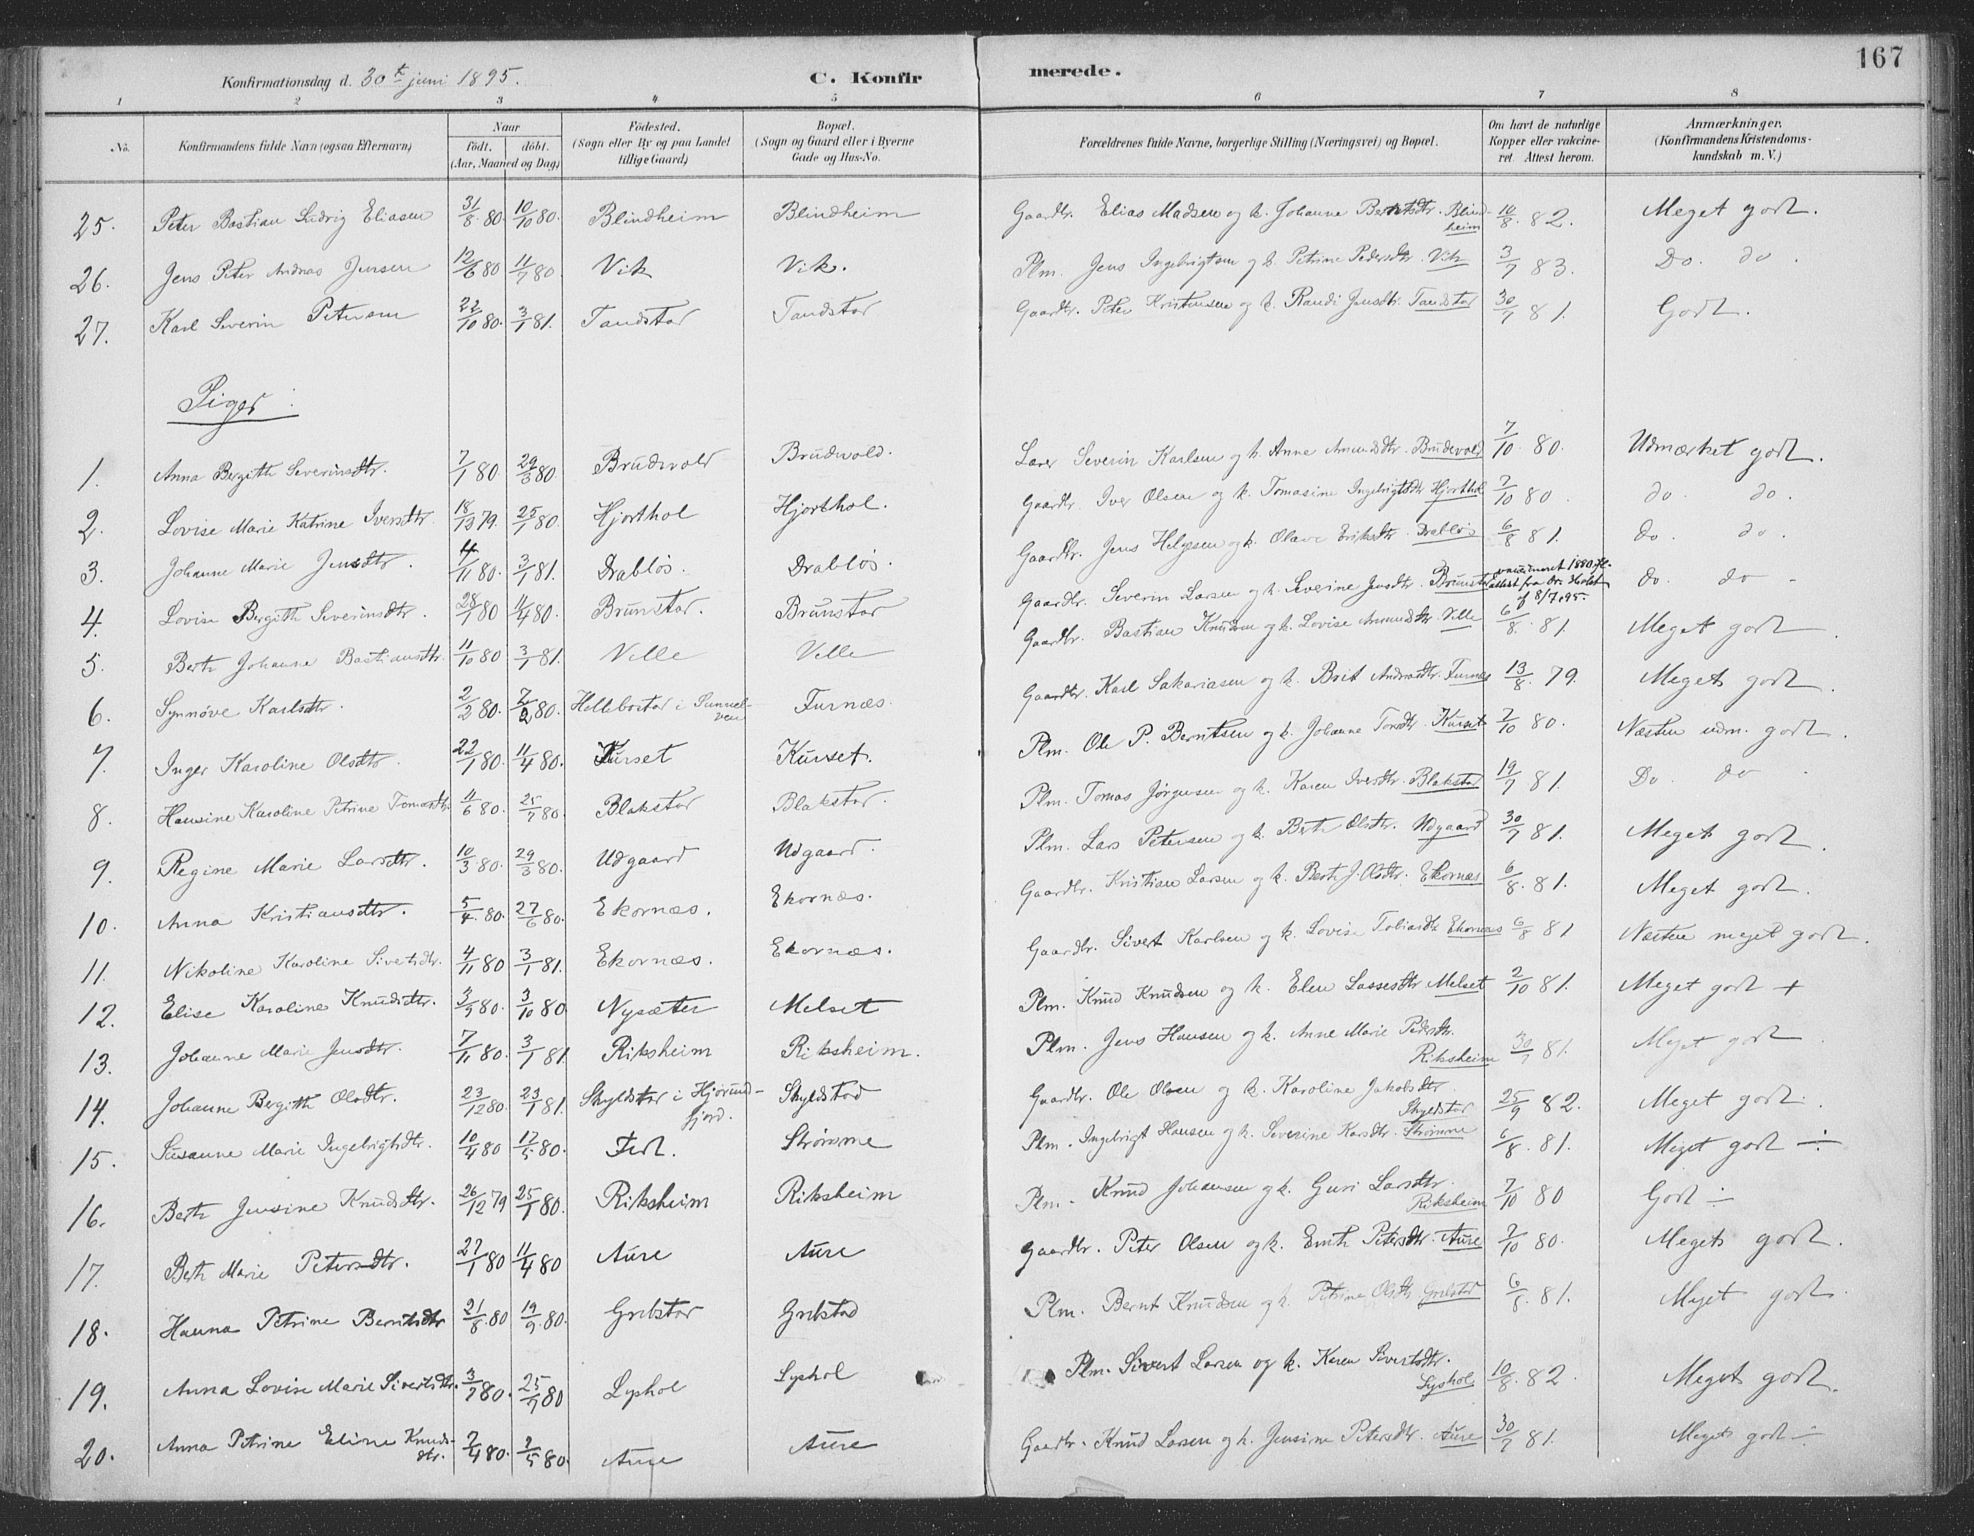 167
Konfirmationsdag d. 30te juni 1895.
C. Konfirmerede.
1 2 3 4 5 6 7 8
No. | Konfirmandens fulde Navn (ogsaa Efternavn) | Naar födt. döbt. (Aar, Maaned og Dag) | Födested. (Sogn eller By og paa Landet tillige Gaard) | Bopæl. (Sogn og Gaard eller i Byerne Gade og Hus-No. | Forældrenes fulde Navne, borgerlige Stilling (Næringsvei) og Bopæl. | Om havt de naturlige Kopper eller vakcineret. Attest herom. | Anmærkninger. (Konfirmandens Kristendomskundskab m. V.)
25. Peter Bastian Ludvig Eliasen 31/8 80 10/10 80. Blindheim Blindheim Gaardbr. Elias Madsen og k. Johanne Berntsdtr. Blindheim 10/8. 82. Meget godt.
26. Jens Peter Andreas Jensen 12/6 80 11/7 80. Vik Vik. Plm. Jens Ingebrigtsen og k. Petrine Pedersdtr. Vik 3/7 83. Do. do.
27. Karl Severin Petersen 22/10 80. 3/1 81. Tandstad Tandstad Gaardbr. Peter Kristensen og k. Randi Jensdtr. Tandstad 30/7 81. Godt.
Piger
1. Anna Bergitte Severinsdtr. 7/1 80 29/3 80. Brudevold Brudevold. Lærer Severin Karlsen og k. Anne Amundsdtr. Brudevold 7/10. 80. Udmærket godt.
2. Lovise Marie Katrine Iversdtr. 18/12 79. 25/1 80. Hjorthol Hjorthol. Gaardbr. Iver Olsen og k. Tomasine Ingebrigtsdtr Hjorthol 7/10 80. do. do.
3. Johanne Marie Jensdtr. 4/11 80. 3/1 81. Drabløs. Drabløs. Gaardbr. Jens Helgesen og k. Olave Eriksdtr. Drabløs 6/8 81. do. do.
4. Lovise Bergitte Severinsdtr. 28/1 80 4/4 80. Brunstad. Brunstad Gaardbr. Severin Larsen og k. Severine Jensdtr. Brunstad vaccineret 1880 attest fra Dr. Holst af 8/7 95. do. do
5. Berte Johanne Bastiansdtr. 11/10 80 3/1 81. Velle Velle Gaardbr. Bastian Knudsen og k. Lovise Amundsdtr. Velle 6/8. 81. Meget godt.
6. Synnøve Karlsdtr. 2/2 80. 7/2 80. Hellebostad i Sunnelven Furnæs. Gaardbr. Karl Sakariasen og k. Brit Andreasdtr. Furnæs 13/8. 79. Meget godt.
7. Inger Karoline Olsdtr. 22/1 80. 11/4 80. Kurset Kurset. Plm. Ole P. Berntsen og k. Johanne Tores​dtr. Kurset 7/10 80. Næsten udm. godt.
8. Hansine Karoline Petrine Tomasdtr. 11/6 80. 25/7 80. Blakstad Blakstad. Plm. Tomas Jørgensen og k. Karen Iversdtr. Blakstad 19/7 81. Do do
9. Regine Marie Larsdtr. 10/3 80. 29/3 80. Udgaard Udgaard. Plm. Lars Petersen og k. Berte Olsdtr. Udgaard 30/7 81. Meget godt.
10. Anna Kristiansdtr. 5/4 80. 27/6 80. Ekornæs. Ekornæs. Gaardbr. Kristian Larsen og k. Berte J. Olsdtr. Ekornæs 6/8. 81. Meget godt.
11. Nikoline Karoline Sivertsdtr. 4/11 80 3/1 81. Ekornæs. Ekornæs. Gaardbr. Sivert Karlsen og k. Lovise Tobiasdtr Ekornæs 6/8 81 Næsten meget godt.
12. Elise Karoline Knudsdtr. 3/9 80. 3/10 80. Nysæter Melset Plm. Knud Knudsen og k. Elen Lassesdtr Melset 2/10 81. Meget godt +
13. Johanne Marie Jensdtr. 7/11 80. 3/1 81. Riksheim Riksheim. Plm. Jens Hansen og k. Anne Marie Pedersdtr. Riksheim 30/7 81. Meget godt
14. Johanne Bergitte Olsdtr. 23/12 80. 23/1 81. Skyldstad i Hjørundfjord. Skyldstad Gaardbr. Ole Olsen og k. Karoline Jakobsdtr. Skyldstad 25/9 82. Meget godt.
15. Susanne Marie Ingebrigtsdtr. 10/4 80 17/5 80. Fet. Strømme Plm. Ingebrigt Hansen og k. Severine Karlsdtr. Strømme 6/8. 81. Meget godt ÷
16. Berte Jensine Knudsdtr. 26/12 79 25/1 80. Riksheim Riksheim Plm. Knud Johansen og k. Guri Larsdtr. Riksheim 7/10 80 Godt ÷
17. Berte Marie Petersdtr. 27/1 80 11/4 80 Aure Aure Gaardbr. Peter Olsen og k. Emte Petersdtr. Aure 7/10 80. Meget godt.
18. Hanna Petrine Berntsdtr 21/8 80 19/9 80. Grebstad Grebstad Plm. Bernt Knudsen og k. Petrine Olsdtr Grebstad 6/8. 81. Meget godt.
19. Anna Lovise Marie Sivertsdtr. 3/7 80. 25/7 80 Lyshol Lyshol Plm. Sivert Larsen og k. Karen Sivertsdtr. Lyshol 10/8. 82. Meget godt.
20. Anna Petrine Eline Knudsdtr. 7/4 80. 2/5 80. Aure Aure Gaardbr. Knud Larsen og k. Jensine Petersdtr. Aure 30/7 81. Meget godt ÷